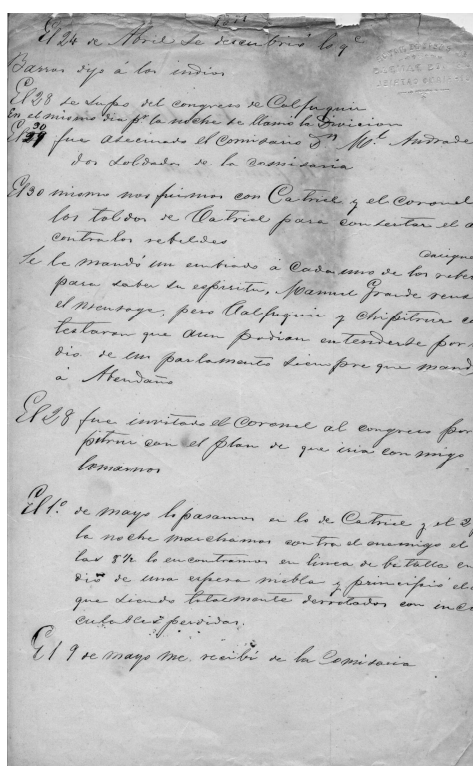 El 24 de Abril se descubrió lo qe
Barros dijo á los indios
El 28 se supo del congreso de Calfuquir
En el mismo dia pr la noche se llamó la Division
El 30 fue asecinado el comisario Dn Ml. Andrade
dos soldados de la comisaria
El 30 mismo nos fuimos con Catriel y el Coronel
los toldos de Catriel para consertar el a
contra los rebeldes
cacique
Se le mandó un embiado á cada uno de los rebel
para saber su espiritu, Manuel Grande
el mensage, pero Calfuquir y Chipitruz co
testaron que aun podian entenderse por
dio de un parlamento siempre que mand
á Abendaño
El 28 fue invitado el Coronel al congreso por
pitruz con el plan de que iria con migo
tomarnos
El 1º de mayo lo pasamos en lo de Catriel y el 2
la noche marchamos contra el enemigo el
las 8½ lo encontramos en linea de batalla en
dio de una espesa niebla y principió el
que siendo totalmente derrotados con
culables perdidas.
El 19 de mayo me recibí de la Comisaria